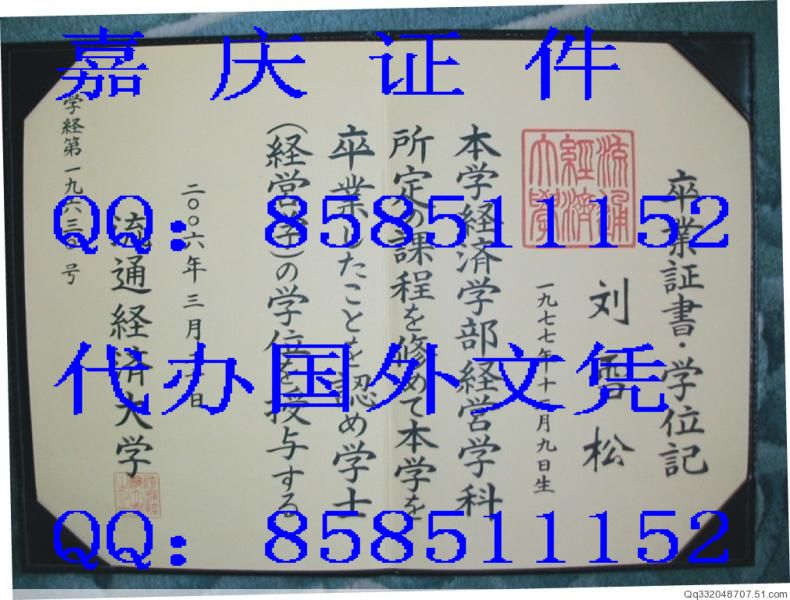 嘉庆证件
QQ：858511152
代办国外文凭
QQ：858511152
卒業証書・学位記
流通
經濟
大學
刘香松
一九七七年十一月九日生
本学経済学部経営学科
所定の課程を修めて本学を
卒業したことを認め学士
(経営学)の学位を授与する
二〇〇六年三月二十日
流通経済大学
学経第一九六三〇号
Qq332048707.51.com